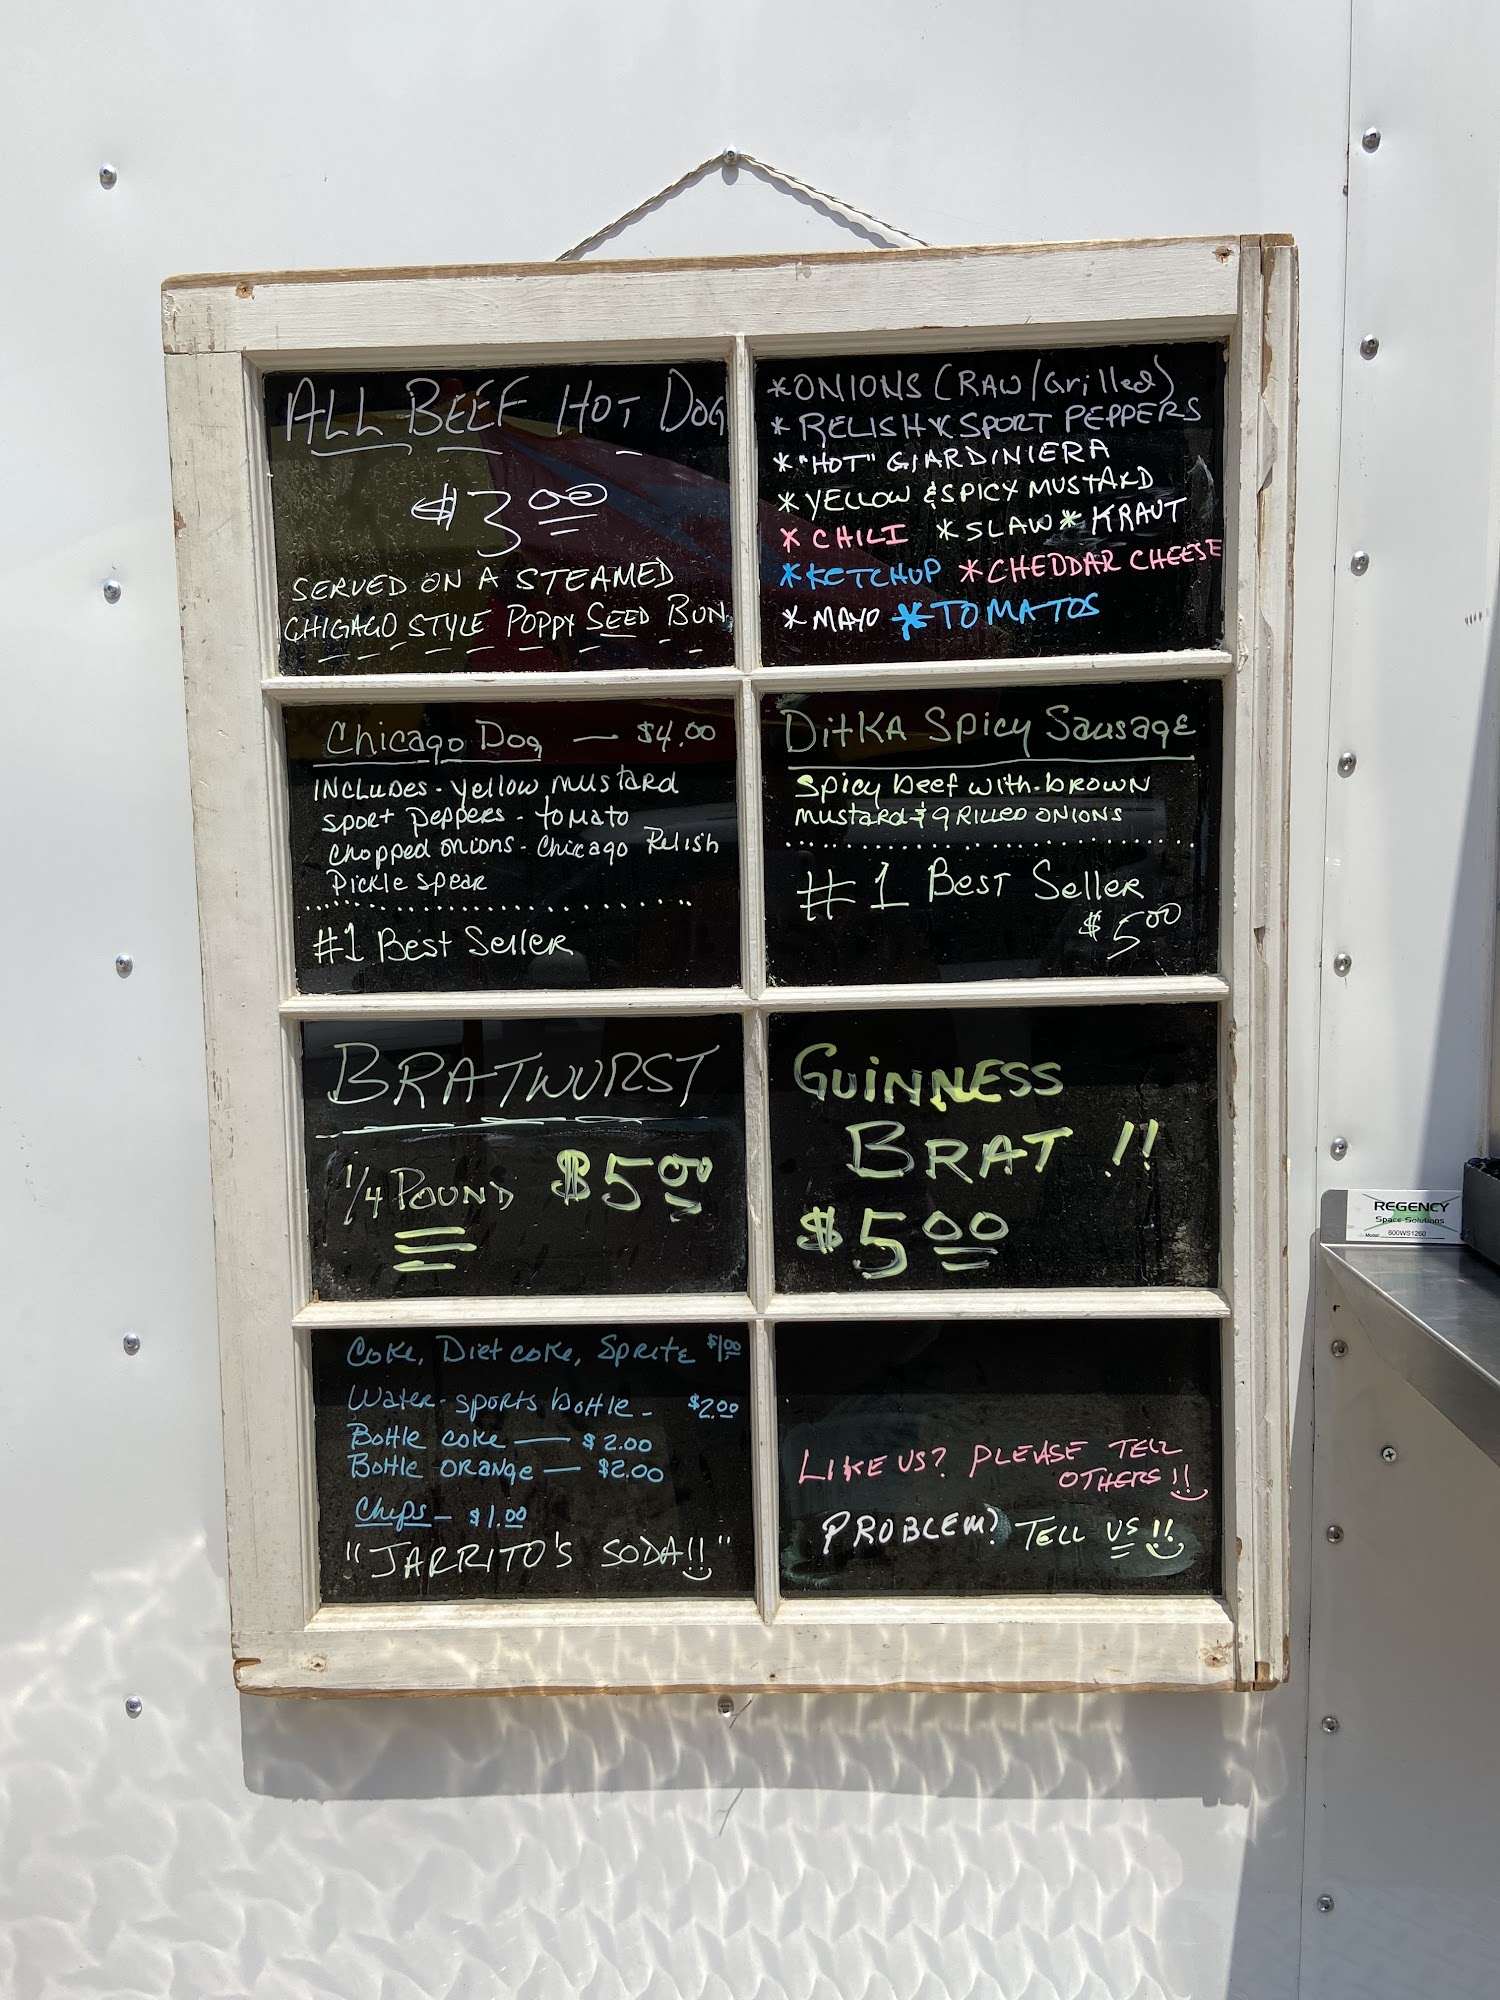 ALL BEEF HOT DOG
$3.00
SERVED ON A STEAMED
CHIGAGO STYLE POPPY SEED BUN
*ONIONS (RAW/Grilled)
* RELISH * SPORT PEPPERS
* "HOT" GIARDINIERA
* YELLOW & SPICY MUSTARD
* CHILI * SLAW * KRAUT
* KETCHUP * CHEDDAR CHEESE
* MAYO * TOMATOS
Chicago Dog — $4.00
INCLUDES - yellow mustard
sport peppers - tomato
chopped onions - Chicago Relish
Pickle spear
#1 Best Seller
DitKA Spicy Sausage
Spicy beef with brown
mustard & gRILLED ONIONS
#1 Best Seller
$5.00
BRATWURST
1/4 POUND $5.00
GUiNNESS
BRAT !!
$5.00
Coke, Diet coke, Sprite $1.00
Water - sports bottle - $2.00
Bottle coke — $2.00
Bottle orange — $2.00
Chips - $1.00
"JARRITO'S SODA!!"
LIKE US? PLEASE TELL
OTHERS!!
PROBLEM? TELL US!!
REGENCY
Space Solutions
Model 600WS1260